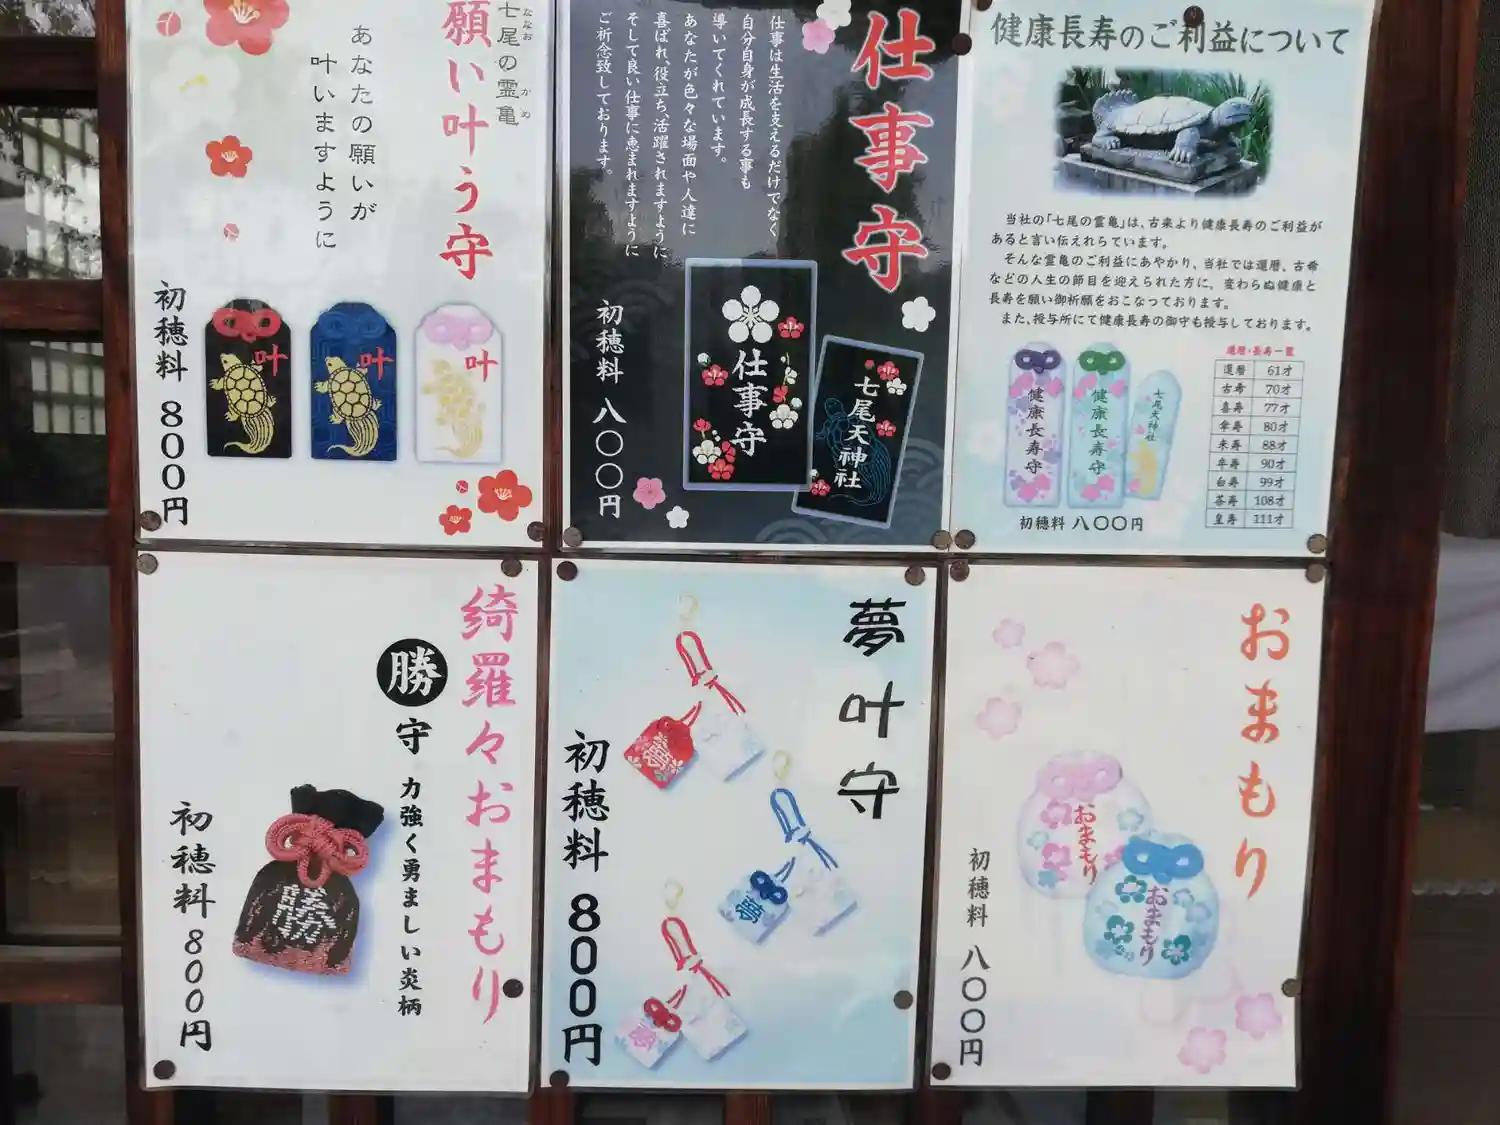 七尾の霊亀
ななお
かめ
願い叶う守
あなたの願いが
叶いますように
初穂料 800円
叶
叶
叶
仕事守
仕事は生活を支えるだけでなく
自分自身が成長する事も
導いてくれています。
あなたが色々な場面や人達に
喜ばれ、役立ち、活躍されますように
そして良い仕事に恵まれますように
ご祈念致しております。
初穂料 八〇〇円
仕事守
七尾天神社
健康長寿のご利益について
当社の「七尾の霊亀」は、古来より健康長寿のご利益が
あると言い伝えれらています。
そんな霊亀のご利益にあやかり、当社では還暦、古希
などの人生の節目を迎えられた方に、変わらぬ健康と
長寿を願い御祈願をおこなっております。
また、授与所にて健康長寿の御守も授与しております。
健康長寿守
健康長寿守
七尾天神社
初穂料 八〇〇円
還暦・長寿一覧
還暦 61才
古希 70才
喜寿 77才
傘寿 80才
米寿 88才
卒寿 90才
白寿 99才
茶寿 108才
皇寿 111才
綺羅々おまもり
勝守 力強く勇ましい炎柄
初穂料 800円
勝守
夢叶守
初穂料 800円
おまもり
おまもり
おまもり
初穂料 八〇〇円